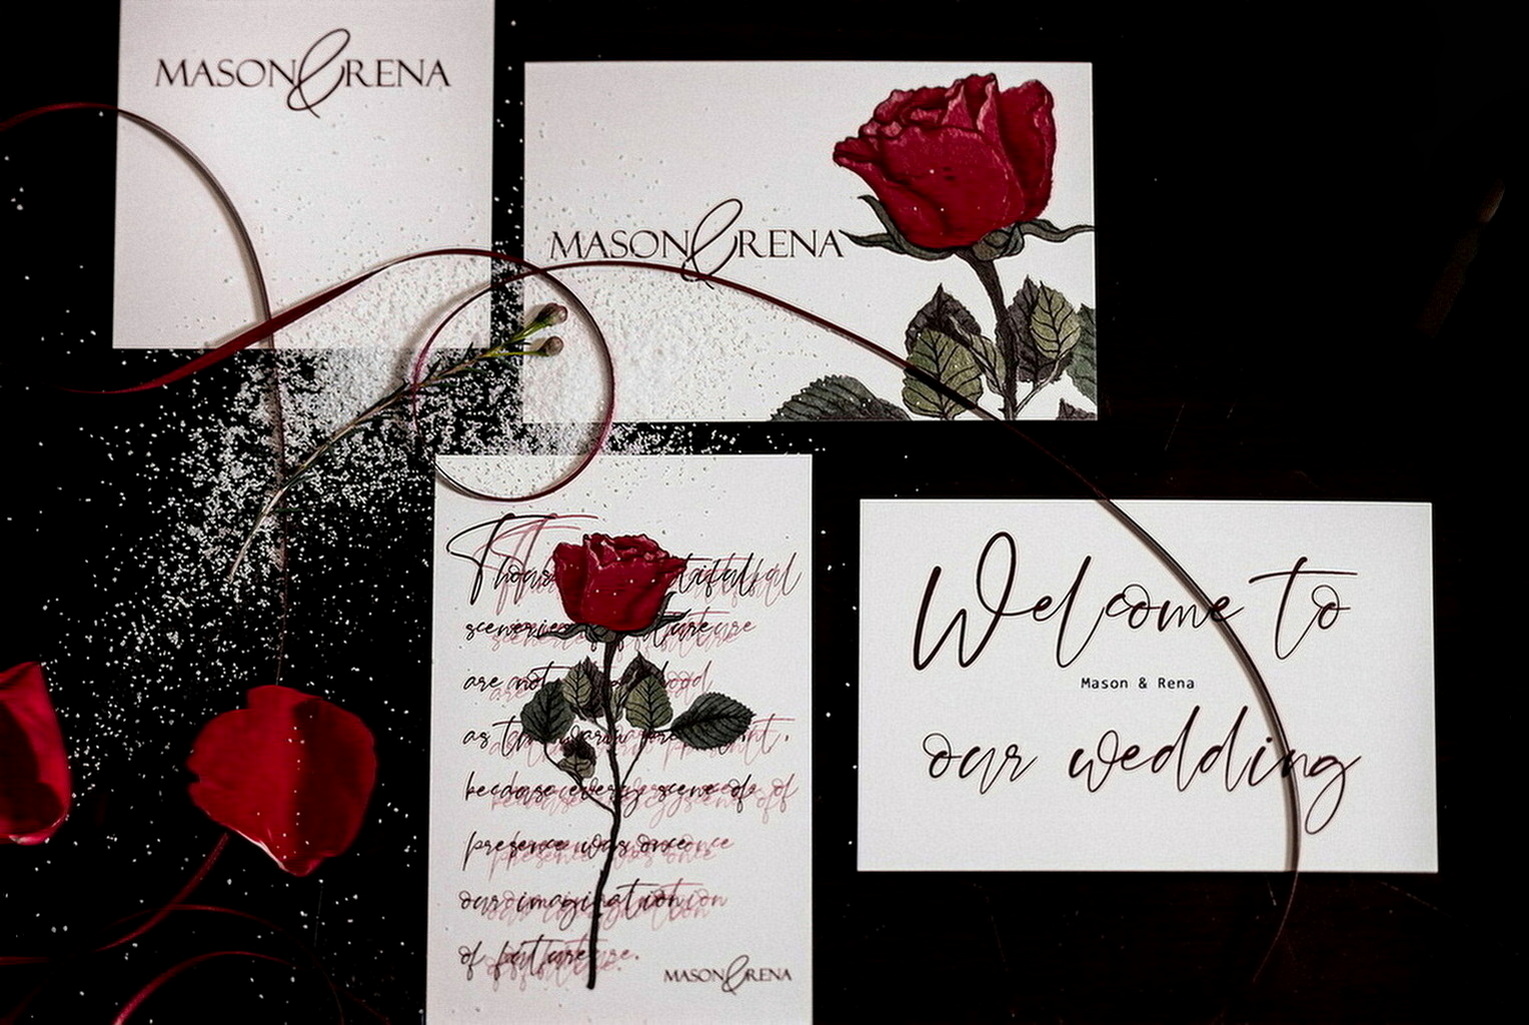 MASON & RENA
MASON & RENA
sceneries of future
are not
as
because every scene of
presence was once
our imagination
of future.
MASON & RENA
Welcome to
Mason & Rena
our wedding